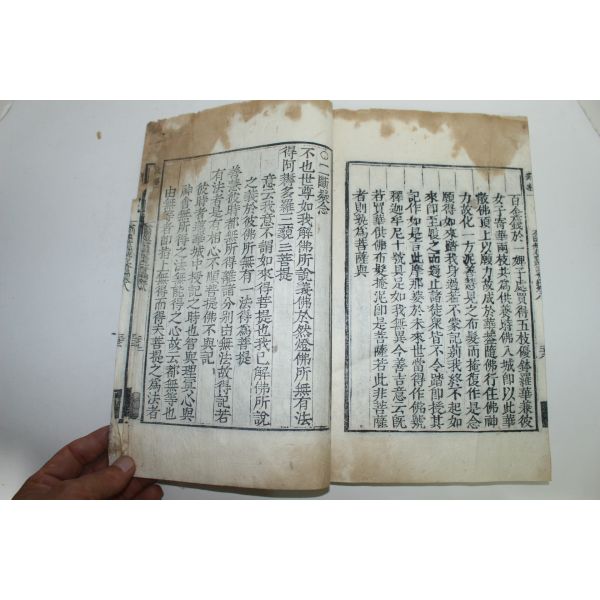 百金錢於一婢子處買得五枝優鉢羅華兼彼
女子寄華兩枝共爲供養時佛入城即以此華
散佛頂上以願力故成於華蓋隨佛行住佛神
力故化一方泥善慧見之布髮而掩復作是念
願得如來踏我身過若不蒙記莂我終不起如
來即至躡之而過止諸徒衆皆不令踏即授其
記作如是言此摩那婆於未來世當得作佛號
釋迦牟尼十號具足如我無異今善吉意云旣
若買華供佛布髮掩泥即是菩薩若此非菩薩
者則孰爲菩薩與
不也世尊如我解佛所說義佛於然燈佛所無有法
得阿耨多羅三藐三菩提
○二斷疑念
意云我意不謂如來得菩提也我已解佛所說
之義於彼佛所無有一法得菩提
善慧彼時都無所得離諸分別由無法故得記若
有法者是有相心不順菩提佛不與記
彼時者蓮華城中授記之時也智與理冥心與
神會無所得之法無能得之心故云都無等也
由無等者即指了無得而得夫菩提之爲法者